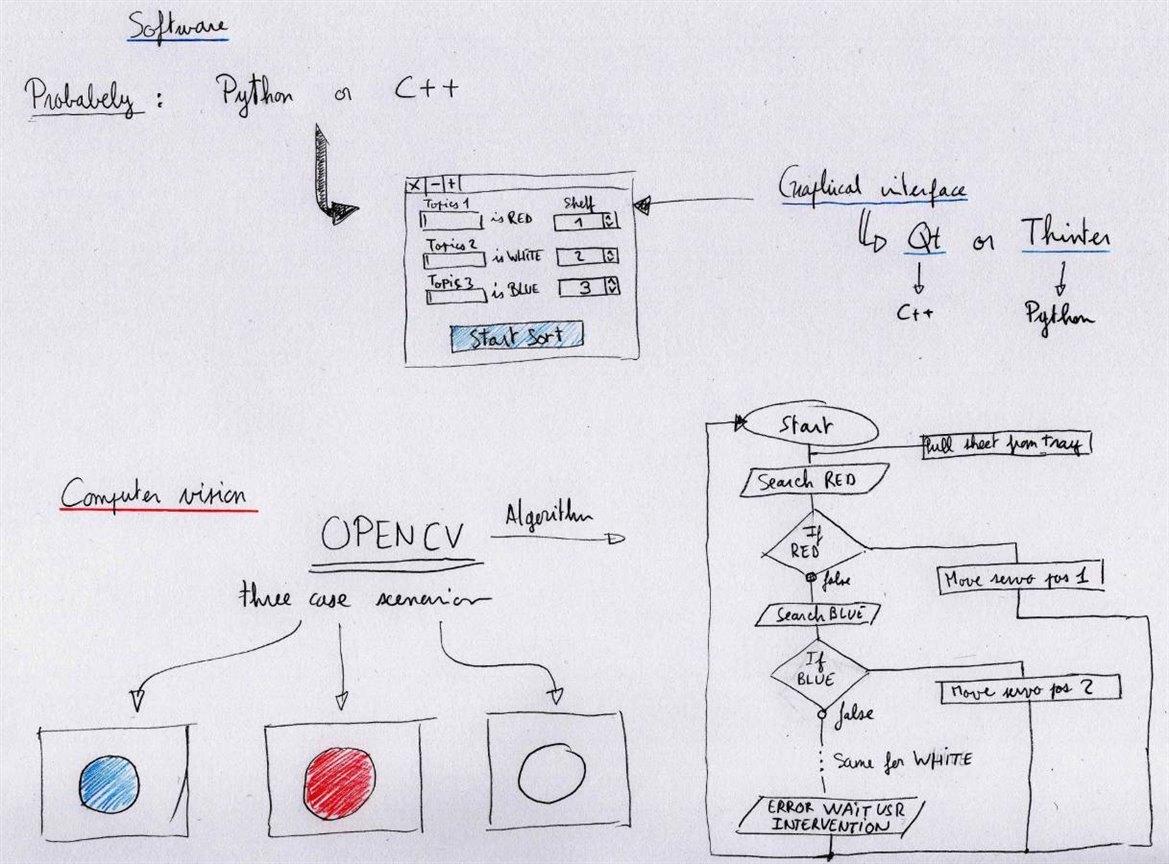 Software
Probabely : Python or C++
X - +
Topics 1 Shelf
is RED 1
Topics 2
is WHITE 2
Topic 3
is BLUE 3
Start Sort
Graphical interface
Qt or Thinter
C++ Python
Computer vision
OPENCV
Algorithm
three case scenarior
Start
Pull sheet from tray
Search RED
If
RED
false
Move servo pos 1
Search BLUE
If
BLUE
false
Move servo pos 2
Same for WHITE
ERROR WAIT USR
INTERVENTION